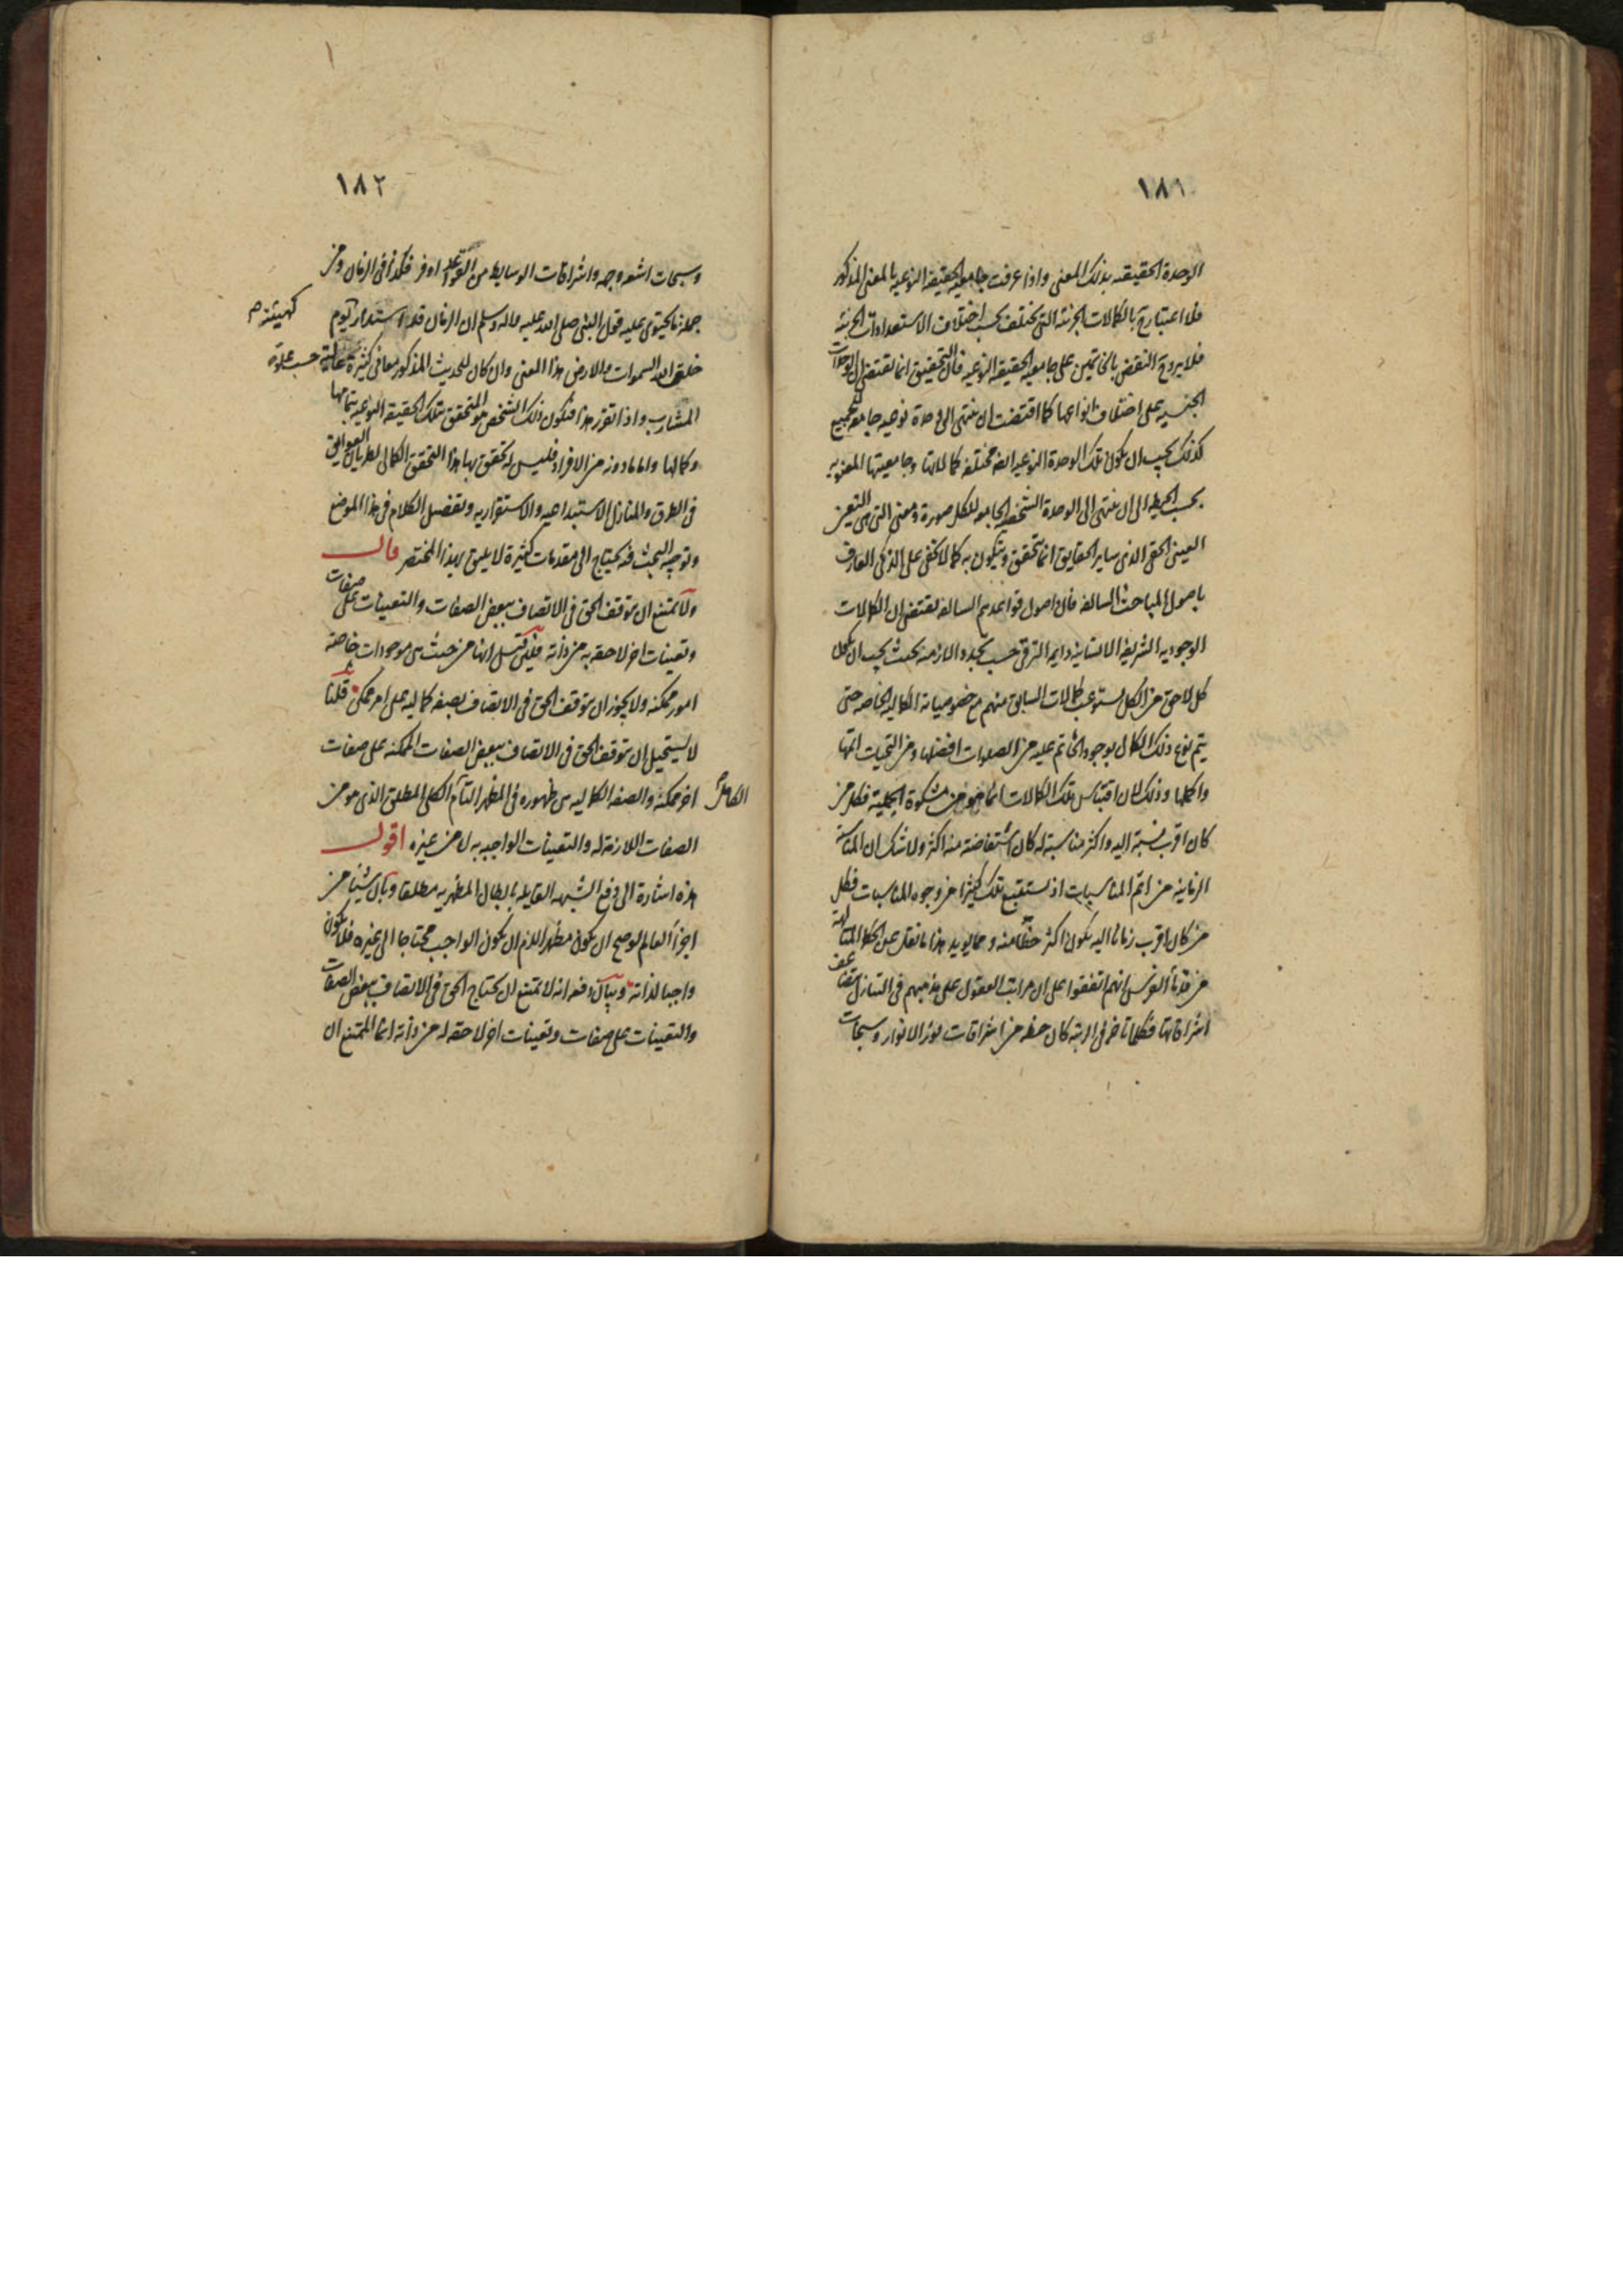 ١٨١
الوحدة الحقيقيه بذلك المعنى واذا عرفت جامعية الحقيقه النوعيه بالمعنى المذكور
فلا اعتبار ح بالكمالات الجزئية التى تختلف بحسب اختلاف الاستعدادات الجزئية
فلا يروح النقض بالخاتمين على جامعية الحقيقه النوعيه فان التحقيق انما يقتضى ان الوحدات
الجنسيه على اختلاف انواعها كما اقتضت ان تنتهى الى وحدة نوعيه جامعه للجميع
كذلك يجب ان يكون تلك الوحدة النوعيه ايضا مختلفه كمالاتها وجامعيتها المعنويه
بحسب الحيطه الى ان تنتهى الى الوحدة الشخصيه الجامعه للكل صورة ومعنى التى هى التعين
العينى الحقى الذى ساير الحقايق انما تتحقق ويتكون به كما لا يخفى على الذكى العارف
باصول المباحث السالفه فان اصول قواعدهم السالفه تقتضى ان الكمالات
الوجوديه الشريفة الانسانية دايمة الترقى حسب تجدد الازمنه بحيث يجب ان يكون
كل لاحق من الكمل مستوعب كمالات السابق منهم مع خصوصياته الكماليه الخاصه حتى
يتم نوع ذلك الكمال بوجود الخاتم عليه من الصلوات افضلها ومن التحيات اتمها
واكملها وذلك لان اقتباس تلك الكمالات انما هو من مشكوة الختمية فكل من
كان اقرب نسبة اليه واكثر مناسبة له كان استفاضته منه اكثر ولا شك ان المناسبة
الزمانية من اتم المناسبات اذ تستتبع تلك كثيرا من وجوه المناسبات فكل
من كان اقرب زمانا اليه يكون اكثر حظا منه ومما يويد هذا ما نقل عن الحكما المتالهة
من قدمأ الفرس انهم اتفقوا على ان مراتب العقول على مذهبهم فى التنازل يتضاعف
اشراقاتها فكلما تاخر فى الرتبة كان حظه من اشراقات نور الانوار وسبحات
١٨٢
وسبحات اشعه وجهه واشراقات الوسايط من العقول عليه اوفر فكذا فى الزمان ومن
جملة ما يحتوى عليه قول النبى صلى الله عليه واله وسلم ان الزمان قد استدار كهيئته يوم
خلق الله السموات والارض هذا المعنى وان كان للحديث المذكور معانى كثيرة عالية حسب علو
المشارب واذا تقرر هذا فنكون ذلك الشخص هو المتحقق بتلك الحقيقه النوعيه بتمامها
وكمالها واما ما دونه من الافراد فليس له تحقق بها هذا التحقق الكمالى لطريان العوايق
فى الطرق والمنازل الاستيداعيه والاستقراريه وتفصيل الكلام فى هذا الموضع
وتوجيه البحث فيه يحتاج الى مقدمات كثيرة لا يليق بهذا المختصر قال
ولا يمتنع ان يتوقف الحق فى الاتصاف ببعض الصفات والتعينات على صفات
وتعينات اخر لاحقه به من ذاته فلئن قيل انها من حيث هى موجودات خاصة
امور ممكنه ولا يجوز ان يتوقف الحق فى الاتصاف بصفه كماليه على امر ممكن قلنا
لا يستحيل ان يتوقف الحق فى الاتصاف ببعض الصفات الممكنه على صفات
اخر ممكنه والصفه الكماليه هى ظهوره فى المظهر التام الكلى المطلق الذى هو من
الكامل
الصفات اللازمة له والتعينات الواجبه به لا من غيره اقول
هذه اشارة الى دفع الشبهه القايله بابطال المظهريه مطلقا وبيان شيئا من
اجزأ العالم لو صح ان يكون مظهرا لزم ان يكون الواجب محتاجا الى غيره فلا يكون
واجبا لذاته وبيان دفعه انه لا يمتنع ان يحتاج الحق فى الاتصاف ببعض الصفات
والتعينات على صفات وتعينات اخر لاحقه له من ذاته انما الممتنع ان